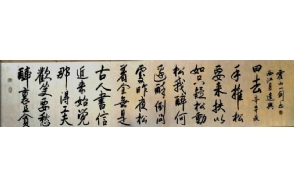 醉裏且貪
歡笑要愁
那得工夫
近来始覺
古人書信
着全無是
處昨夜松
邊醉倒問
松我醉何
如只疑松動
要来扶以
手推松
曰去 辛弃疾
西江月遣興